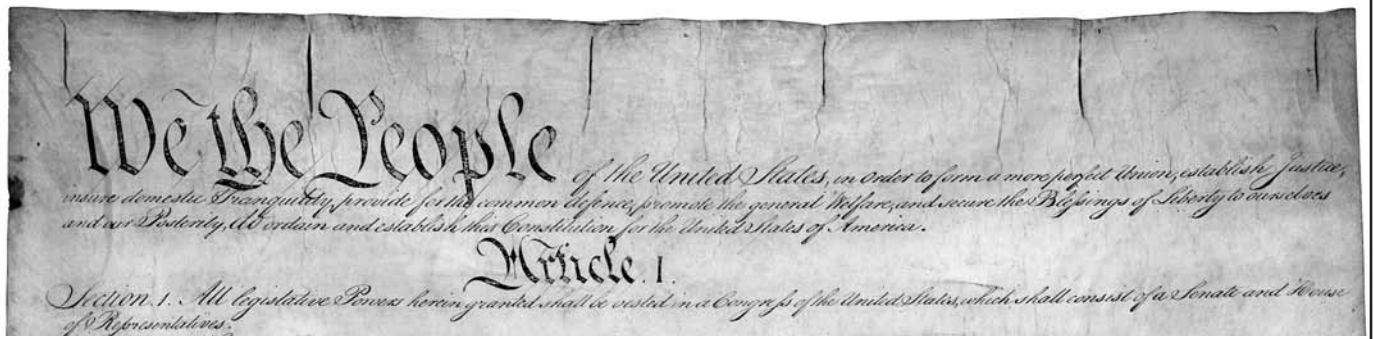 We the People of the United States, in Order to form a more perfect Union, establish Justice,
insure domestic Tranquility, provide for the common defence, promote the general Welfare, and secure the Blessings of Liberty to ourselves
and our Posterity, do ordain and establish this Constitution for the United States of America.
Article. I.
Section. 1. All legislative Powers herein granted shall be vested in a Congress of the United States, which shall consist of a Senate and House
of Representatives.